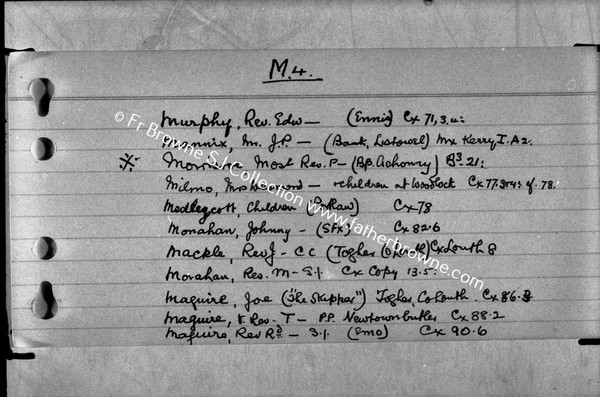 M.4.
Murphy, Rev. Edw — (Ennis) Cx 71, 3, 4:
Mannix, Mr. J.P. — (Bank, Listowel) Mx Kerry I. A2.
Most Rev. P — (Bp. Achonry) B3 21:
Milmo, Mrs — & children at Woodlock Cx 77. 3+4: cf. 78.
Medlycott, Children Cx 78
Monahan, Johnny — (SFX) Cx 82.6
Mackle, Rev J — C C (Togher Co Louth) Cx Louth 8
Monahan, Rev. M — S.J. Cx Copy 13.5.
Maguire, Joe ("The Skipper") Togher, Co Louth. Cx 86.
Maguire, V. Rev. — T — P.P. Newtownbutler Cx 88.2
Maguire, Rev Rd — S.J. (Emo) Cx 90.6
© Fr Browne SJ Collection www.fatherbrowne.com